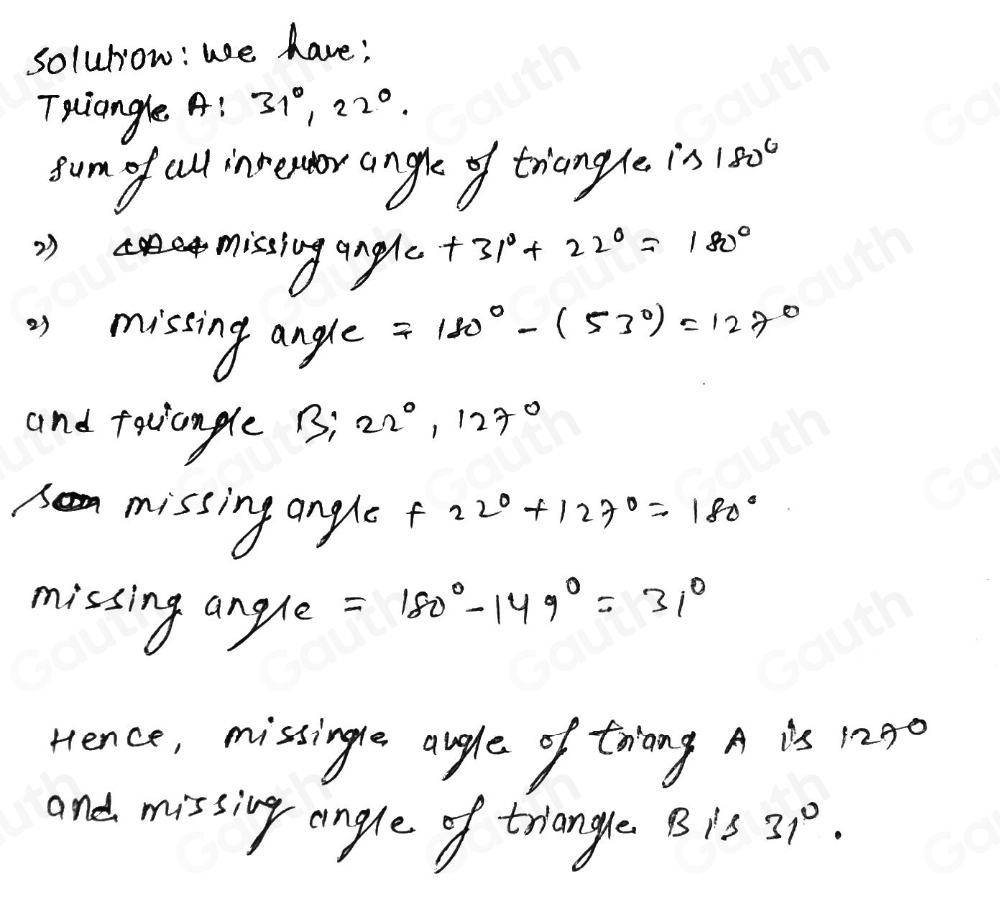 Solution: we have:
Triangle A: 31°, 22°.
sum of all interior angle of triangle is 180°
⇒ missing angle + 31° + 22° = 180°
⇒ missing angle = 180° - (53°) = 127°
and triangle B; 22°, 127°
missing angle + 22° + 127° = 180°
missing angle = 180° - 149° = 31°
Hence, missingle angle of triang A is 127°
and missing angle of triangle B is 31°.